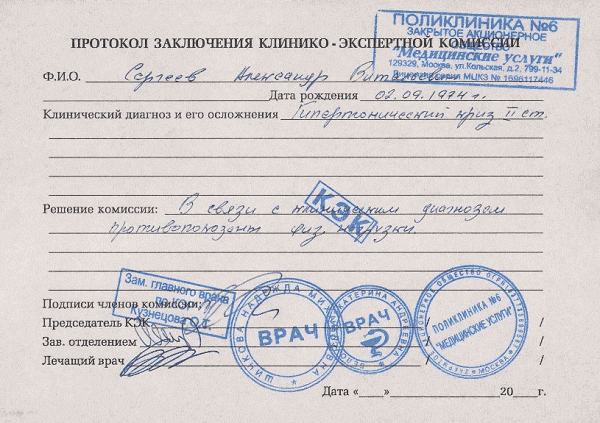 ПОЛИКЛИНИКА №6
ЗАКРЫТОЕ АКЦИОНЕРНОЕ
ОБЩЕСТВО
"Медицинские услуги"
129329, Москва, ул.Кольская, д.2, 799-11-34
ПРОТОКОЛ ЗАКЛЮЧЕНИЯ КЛИНИКО - ЭКСПЕРТНОЙ КОМИССИИ
Ф.И.О. Сергеев Александр Витальевич
Дата рождения 02.09.1974г.
Клинический диагноз и его осложнения Гипертонический криз II ст.
КЭК
Решение комиссии: В связи с клиническим диагнозом
противопоказаны физ. нагрузки.
Зам. главного врача
по КЭР
Кузнецова О.Т.
Подписи членов комиссии:
Председатель КЭК / /
Зав. отделением / /
Лечащий врач / /
ВРАЧ
НАДЕЖДА
ВРАЧ
ЕКАТЕРИНА АНДРЕЕВНА
ПОЛИКЛИНИКА №6
"МЕДИЦИНСКИЕ УСЛУГИ"
МОСКВА
Дата «____»____________20____г.